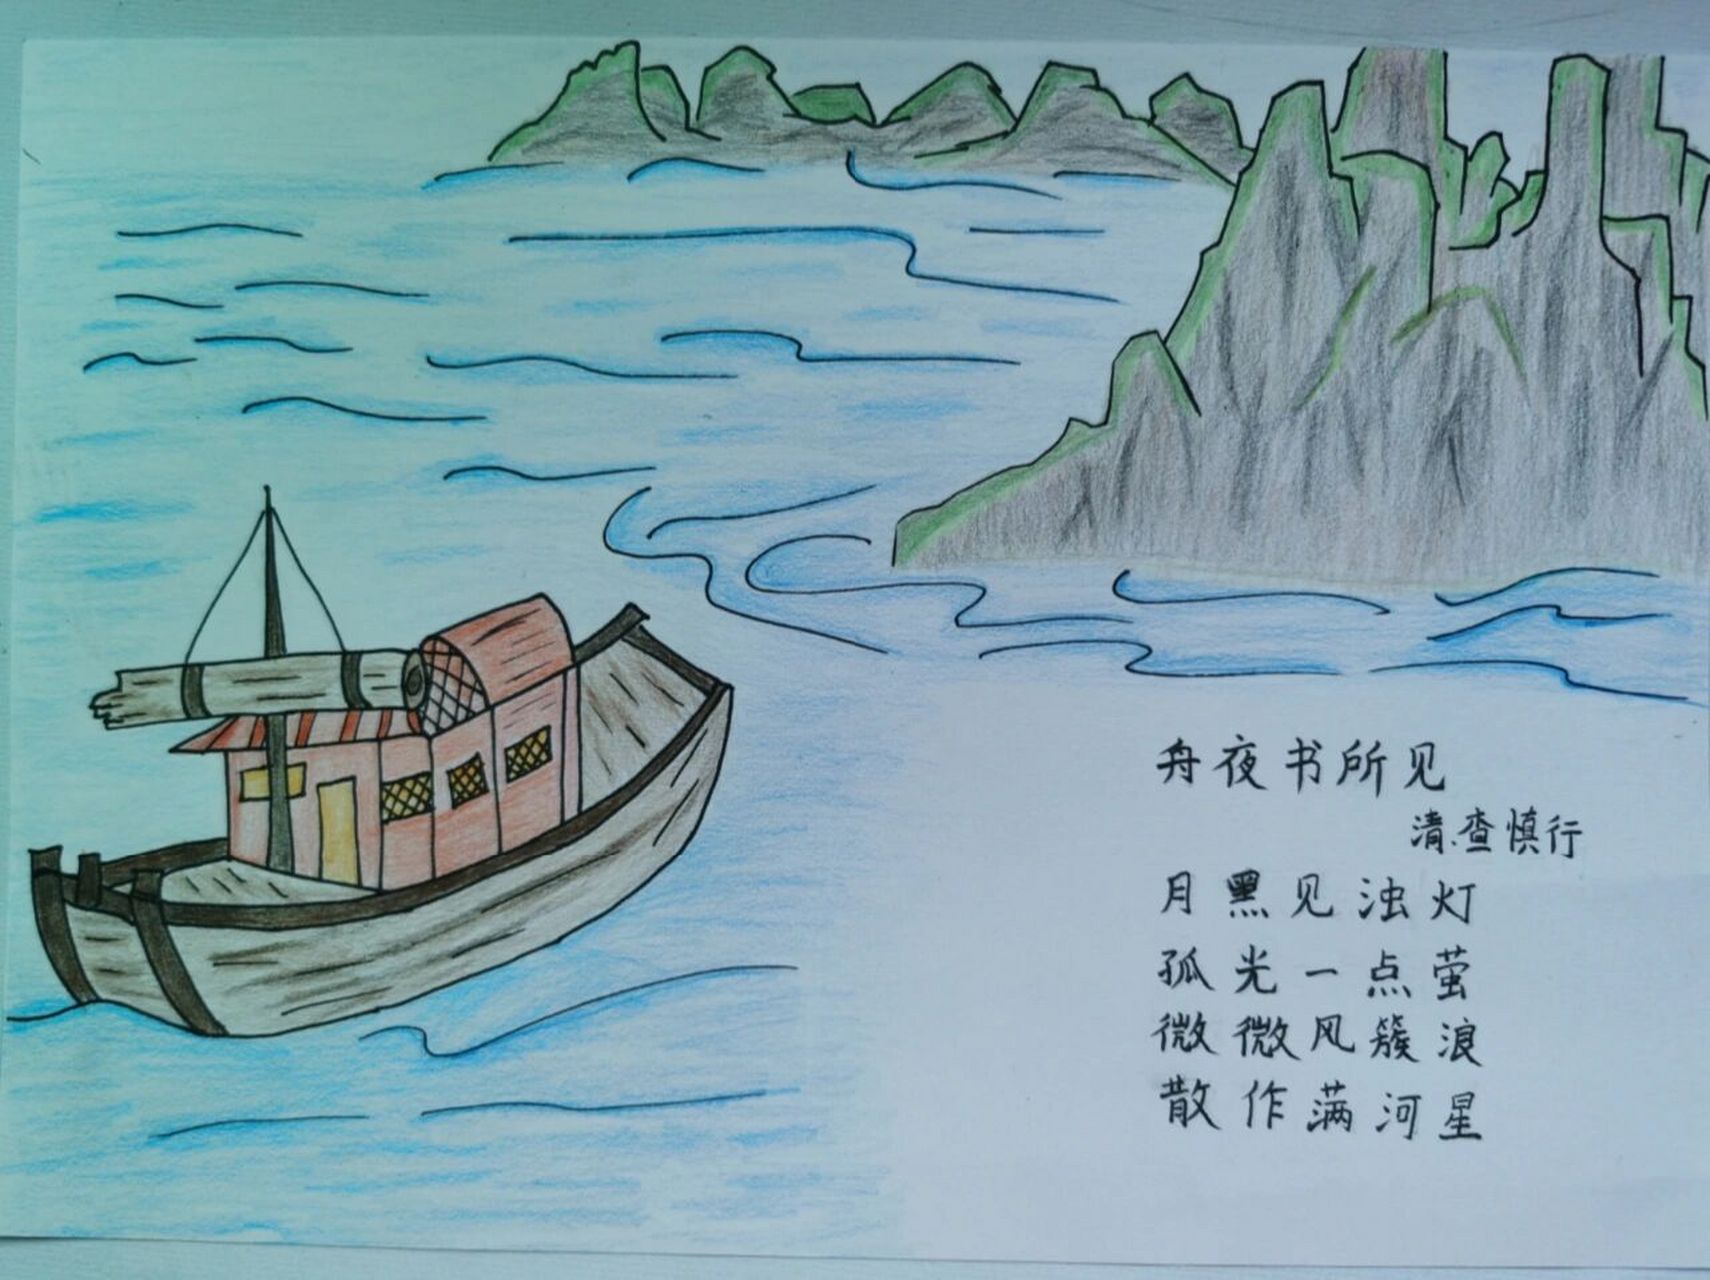 舟夜书所见
清.查慎行
月黑见浊灯
孤光一点萤
微微风簇浪
散作满河星